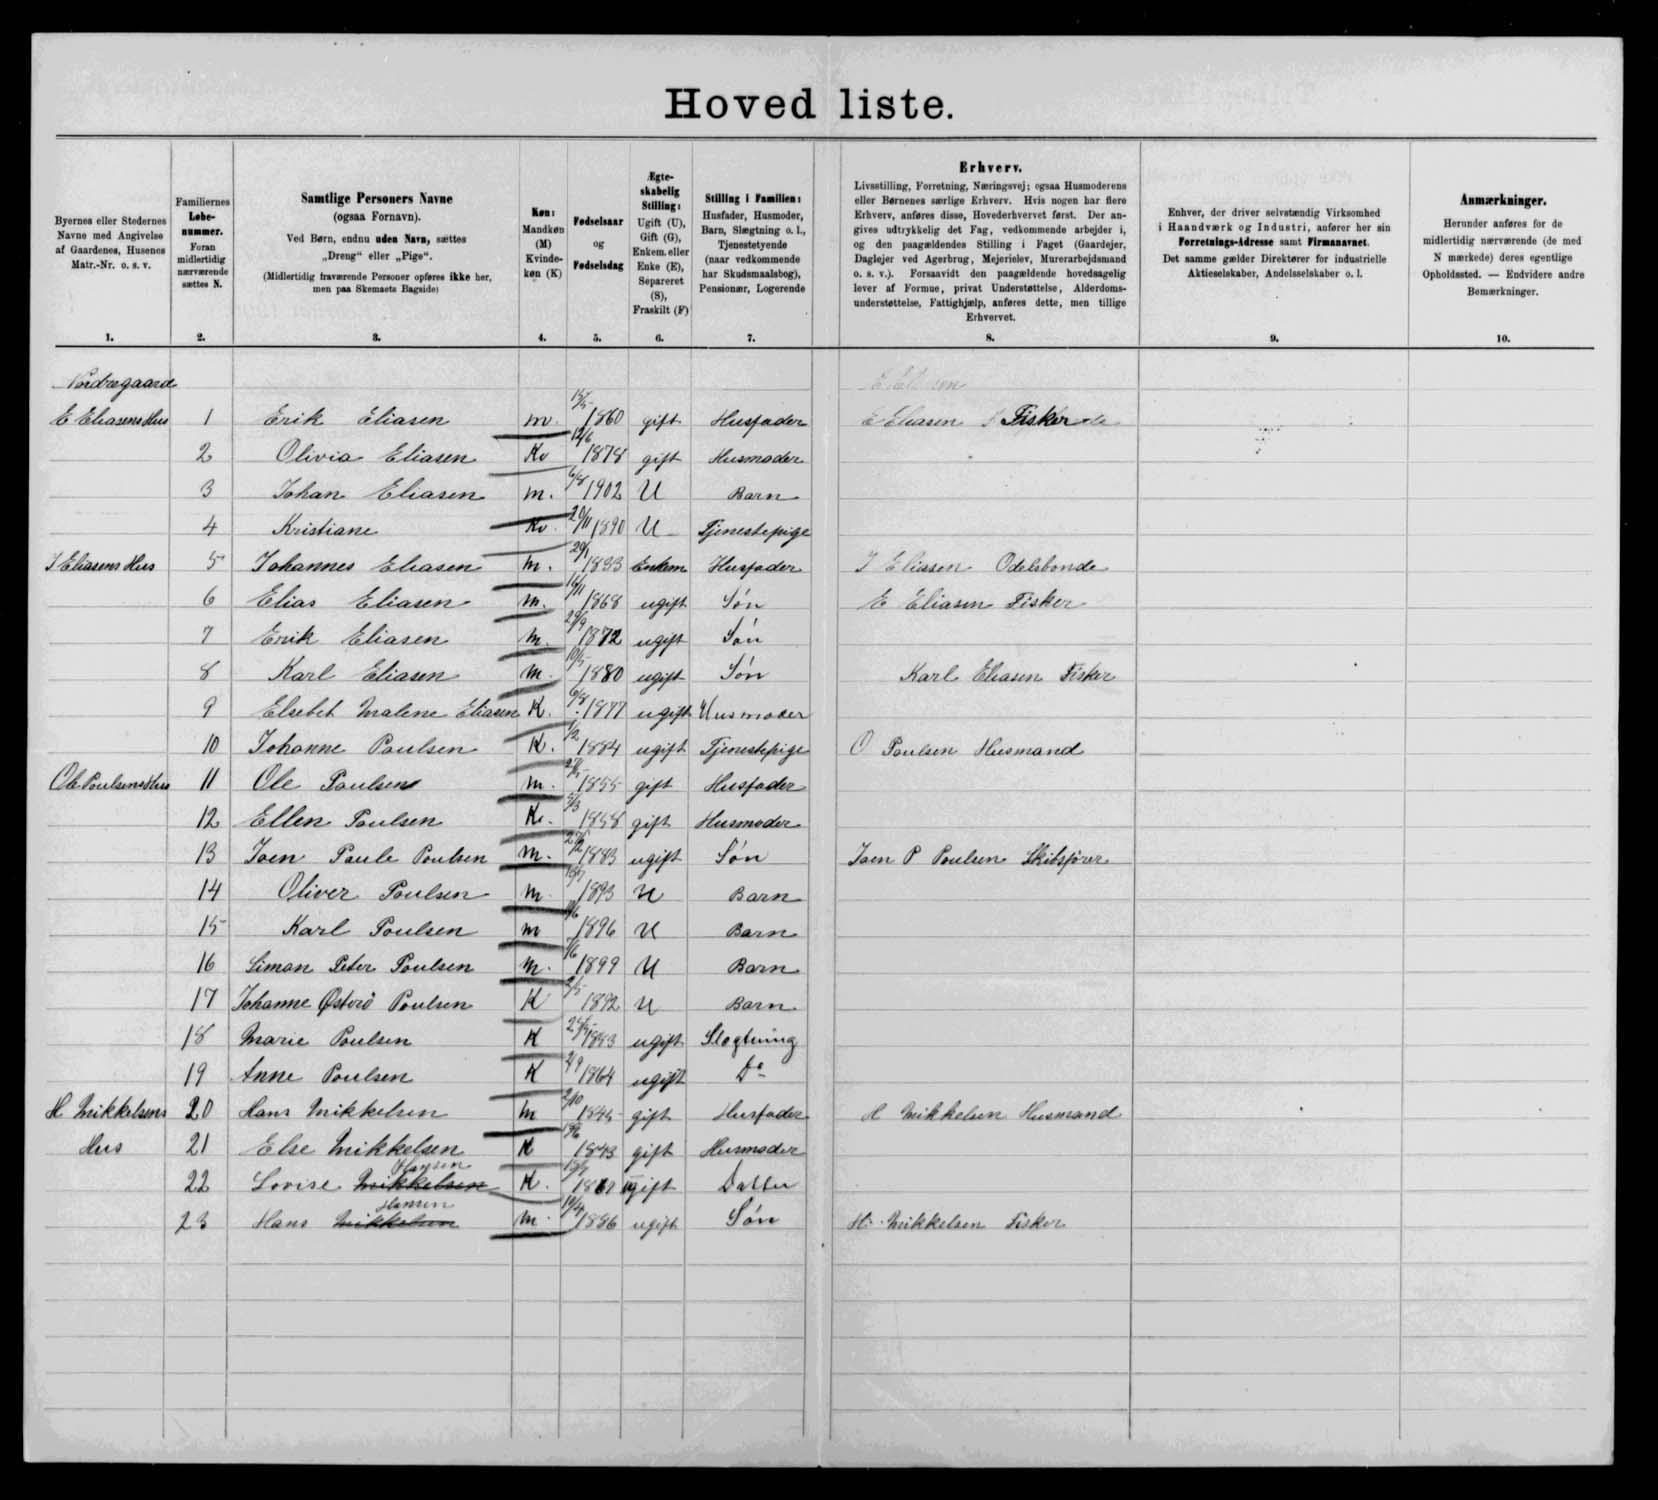 Hoved liste.
Byernes eller Stedernes
Navne med Angivelse
af Gaardenes, Husenes
Matr.-Nr. o. s. v.
1.
Familiernes
Løbe-
nummer.
Foran
midlertidig
nærværende
sættes N.
2.
Samtlige Personers Navne
(ogsaa Fornavn).
Ved Børn, endnu uden Navn, sættes
„Dreng“ eller „Pige“.
(Midlertidig fraværende Personer opføres ikke her,
men paa Skemaets Bagside)
3.
Køn:
Mandkøn
(M)
Kvinde-
køn (K)
4.
Fødselsaar
og
Fødselsdag
5.
Ægte-
skabelig
Stilling:
Ugift (U),
Gift (G),
Enkem. eller
Enke (E),
Separeret
(S),
Fraskilt (F)
6.
Stilling i Familien:
Husfader, Husmoder,
Barn, Slægtning o. l.,
Tjenestetyende
(naar vedkommende
har Skudsmaalsbog),
Pensionær, Logerende
7.
Erhverv.
Livsstilling, Forretning, Næringsvej; ogsaa Husmoderens
eller Børnenes særlige Erhverv. Hvis nogen har flere
Erhverv, anføres disse, Hovederhvervet først. Der an-
gives udtrykkelig det Fag, vedkommende arbejder i,
og den paagældendes Stilling i Faget (Gaardejer,
Daglejer ved Agerbrug, Mejerielev, Murerarbejdsmand
o. s. v.). Forsaavidt den paagældende hovedsagelig
lever af Formue, privat Understøttelse, Alderdoms-
understøttelse, Fattighjælp, anføres dette, men tillige
Erhvervet.
8.
Enhver, der driver selvstændig Virksomhed
i Haandværk og Industri, anfører her sin
Forretnings-Adresse samt Firmanavnet.
Det samme gælder Direktører for industrielle
Aktieselskaber, Andelsselskaber o. l.
9.
Anmærkninger.
Herunder anføres for de
midlertidig nærværende (de med
N mærkede) deres egentlige
Opholdssted. — Endvidere andre
Bemærkninger.
10.
Nordregaard
E Eliasens Hus 1 Erik Eliasen m. 1860 gift Husfader E Eliasen Fisker
2 Olivia Eliasen Kv 12/6 1878 gift Husmoder
3 Johan Eliasen m. 6/8 1902 U Barn
4 Kristiane Kv. 20/11 1890 U Tjenestepige
J Eliasens Hus 5 Johannes Eliasen m. 29/1 1833 Enkem Husfader J Eliasen Odelsbonde
6 Elias Eliasen m. 16/11 1868 ugift Søn E Eliasen Fisker
7 Erik Eliasen m. 29/9 1872 ugift Søn
8 Karl Eliasen m. 10/5 1880 ugift Søn Karl Eliasen Fisker
9 Elsebet Malene Eliasen K. 6/8 1877 ugift Husmoder
10 Johanne Poulsen K. 1/2 1884 ugift Tjenestepige O Poulsen Husmand
Ole Poulsens Hus 11 Ole Poulsen m. 1855 gift Husfader
12 Ellen Poulsen Kv. 5/3 1858 gift Husmoder
13 Joen Paule Poulsen m. 1883 ugift Søn Joen P Poulsen Skibsfører
14 Oliver Poulsen m 1893 U Barn
15 Karl Poulsen m 1896 U Barn
16 Simon Peter Poulsen m. 1899 U Barn
17 Johanne Østerø Poulsen K 2/5 1892 U Barn
18 Marie Poulsen K 1883 ugift Slegtning
19 Anne Poulsen K 1864 ugift Do
H Mikkelsens 20 Hans Mikkelsen m 2/10 1845 gift Husfader H Mikkelsen Husmand
Hus 21 Else Mikkelsen K 1843 gift Husmoder
Hansen
22 Lovise Mikkelsen K. ugift Datter
Hansen
23 Hans Mikkelsen m. 19/4 1886 ugift Søn H. Mikkelsen Fisker